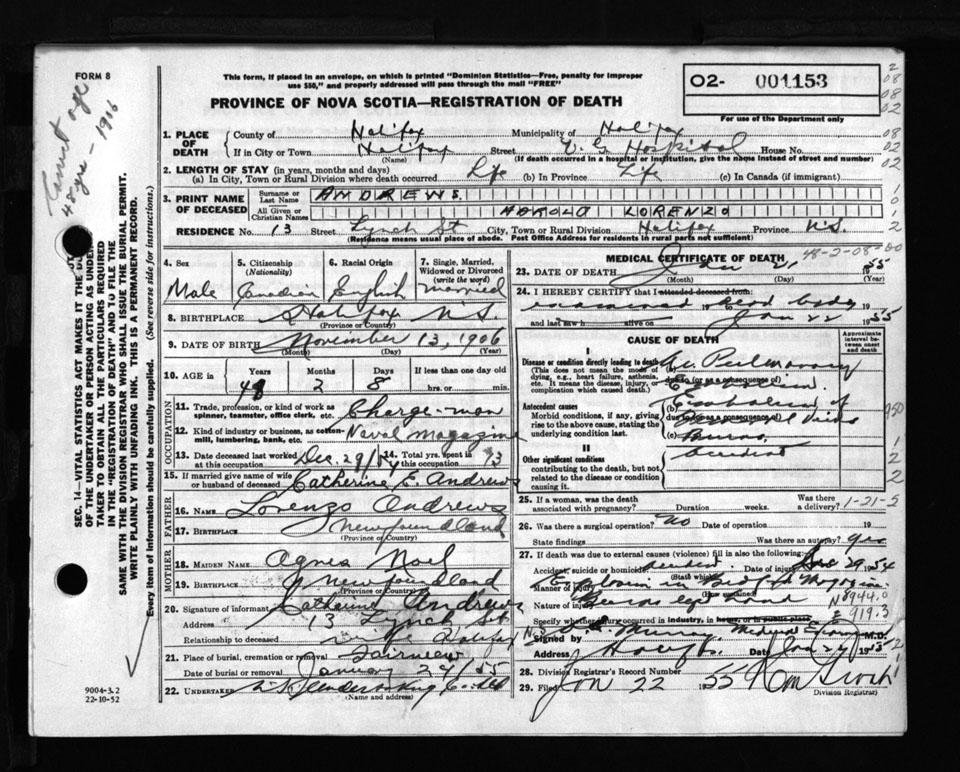 FORM 8
This form, if placed in an envelope, on which is printed "Dominion Statistics—Free, penalty for improper
use $50," and properly addressed will pass through the mail "FREE"
PROVINCE OF NOVA SCOTIA—REGISTRATION OF DEATH
O2- 001153
For use of the Department only
48 yrs - 1906
1. PLACE OF DEATH County of Halifax Municipality of Halifax
If in City or Town Halifax Street V. G. Hospital House No.
(Name) (If death occurred in a hospital or institution, give the name instead of street and number)
2. LENGTH OF STAY (in years, months and days)
(a) In City, Town or Rural Division where death occurred Life (b) In Province Life (c) In Canada (if immigrant)
3. PRINT NAME OF DECEASED Surname or Last Name ANDREWS
All Given or Christian Names HAROLD LORENZO
RESIDENCE No. 13 Street Lynch St City, Town or Rural Division Halifax Province N.S.
(Residence means usual place of abode. Post Office Address for residents in rural parts not sufficient)
4. Sex Male
5. Citizenship (Nationality) Canadian
6. Racial Origin English
7. Single, Married, Widowed or Divorced (write the word) married
8. BIRTHPLACE Halifax N.S.
(Province or Country)
9. DATE OF BIRTH November 13, 1906
(Month) (Day) (Year)
10. AGE in Years Months Days If less than one day
48 2 8 hrs. or min.
OCCUPATION
11. Trade, profession, or kind of work as spinner, teamster, office clerk, etc. Charge-man
12. Kind of industry or business, as cotton-mill, lumbering, bank, etc. Naval magazine
13. Date deceased last worked at this occupation Dec. 29/54
14. Total yrs. spent in this occupation 13
15. If married give name of wife or husband of deceased Catherine E. Andrews
FATHER
16. NAME Lorenzo Andrews
17. BIRTHPLACE Newfoundland
(Province or Country)
MOTHER
18. MAIDEN NAME Agnes Noel
19. BIRTHPLACE Newfoundland
(Province or Country)
20. Signature of informant Catherine Andrews
Address 13 Lynch St
Relationship to deceased wife Halifax N.S.
21. Place of burial, cremation or removal Fairview
Date of burial or removal January 24/55
22. UNDERTAKER
(Name and Address)
MEDICAL CERTIFICATE OF DEATH
48-2-08-00
23. DATE OF DEATH Jan 21 1955
(Month) (Day)
24. I HEREBY CERTIFY that I attended deceased from:
examined dead body 19
and last saw h alive on Jan 22 1955
CAUSE OF DEATH
Approximate interval between onset and death
Disease or condition directly leading to death
(This does not mean the mode of dying, e.g., heart failure, asthenia, etc. It means the disease, injury, or complication which caused death.)
(a) Pulmonary
due to (or as a consequence of)
Embolism
Antecedent causes
Morbid conditions, if any, giving rise to the above cause, stating the underlying condition last.
(b)
due to (or as a consequence of)
(c) Burns
II
Other significant conditions
contributing to the death, but not related to the disease or condition causing it.
accident
25. If a woman, was the death associated with pregnancy? Duration weeks. Was there a delivery? 1-21-5
26. Was there a surgical operation? No Date of operation 19
State findings Was there an autopsy? yes
27. If death was due to external causes (violence) fill in also the following:
Accident, suicide or homicide accident Date of injury Dec 29 1954
(State which)
Manner of injury Explosion in Bedford Magazine
(How sustained)
Nature of injury
N 8944.0
E 919.3
Specify whether injury occurred in industry, in home, or in public place
Signed by Murray, Medical Examiner M.D.
Address Halifax Date Jan 24 1955
28. Division Registrar's Record Number
29. Filed Jan 22 1955
Division Registrar
SEC. 14—VITAL STATISTICS ACT MAKES IT THE DUTY
OF THE UNDERTAKER OR PERSON ACTING AS UNDER-
TAKER TO OBTAIN ALL THE PARTICULARS REQUIRED
IN THE "REGISTRATION OF DEATH" AND TO FILE THE
SAME WITH THE DIVISION REGISTRAR WHO SHALL ISSUE THE BURIAL PERMIT.
WRITE PLAINLY WITH UNFADING INK. THIS IS A PERMANENT RECORD.
Every item of information should be carefully supplied. (See reverse side for instructions.)
9004-3.2
22-10-52